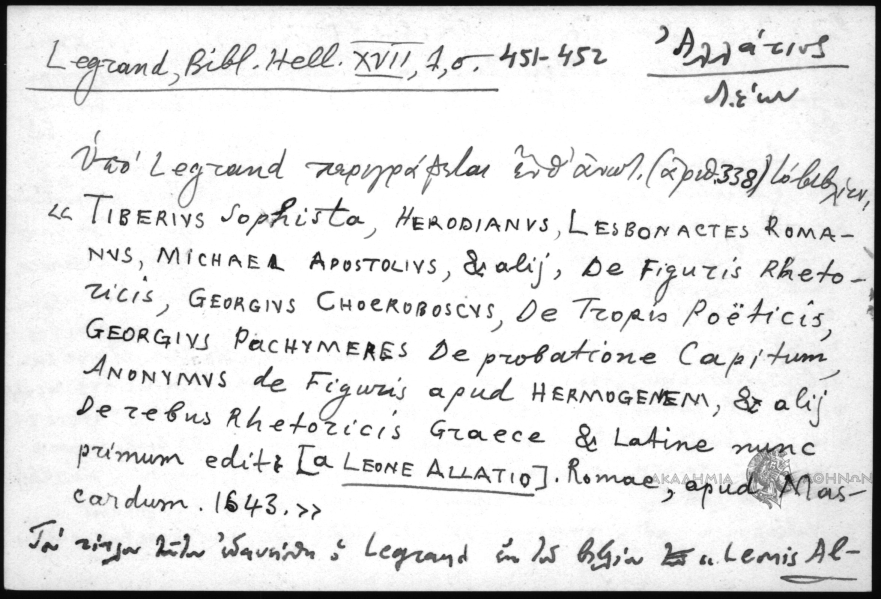 Legrand, Bibl. Hell. XVII, 1, σ. 451-452
Ἀλλάτιος
Λέων
Ὑπό Legrand περιγράφεται ἐνθ' ἀνωτ. (ἀριθ. 338) τό βιβλίον,
«TIBERIVS Sophista, HERODIANVS, LESBONACTES ROMA-
NVS, MICHAEL APOSTOLIVS, & alij, De Figuris Rheto-
ricis, GEORGIVS CHOEROBOSCVS, De Tropis Poëticis,
GEORGIVS PACHYMERES De probatione Capitum,
ANONYMVS de Figuris apud HERMOGENEM, & alij
De rebus Rhetoricis Graece & Latine nunc
primum editi [a LEONE ALLATIO]. Romae, apud Mas-
cardum. 1643.»
Τόν τίτλον τοῦτον ἐδανείσθη ὁ Legrand ἐκ τοῦ βιβλίου «Leonis Al-
ΑΚΑΔΗΜΙΑ ΑΘΗΝΩΝ